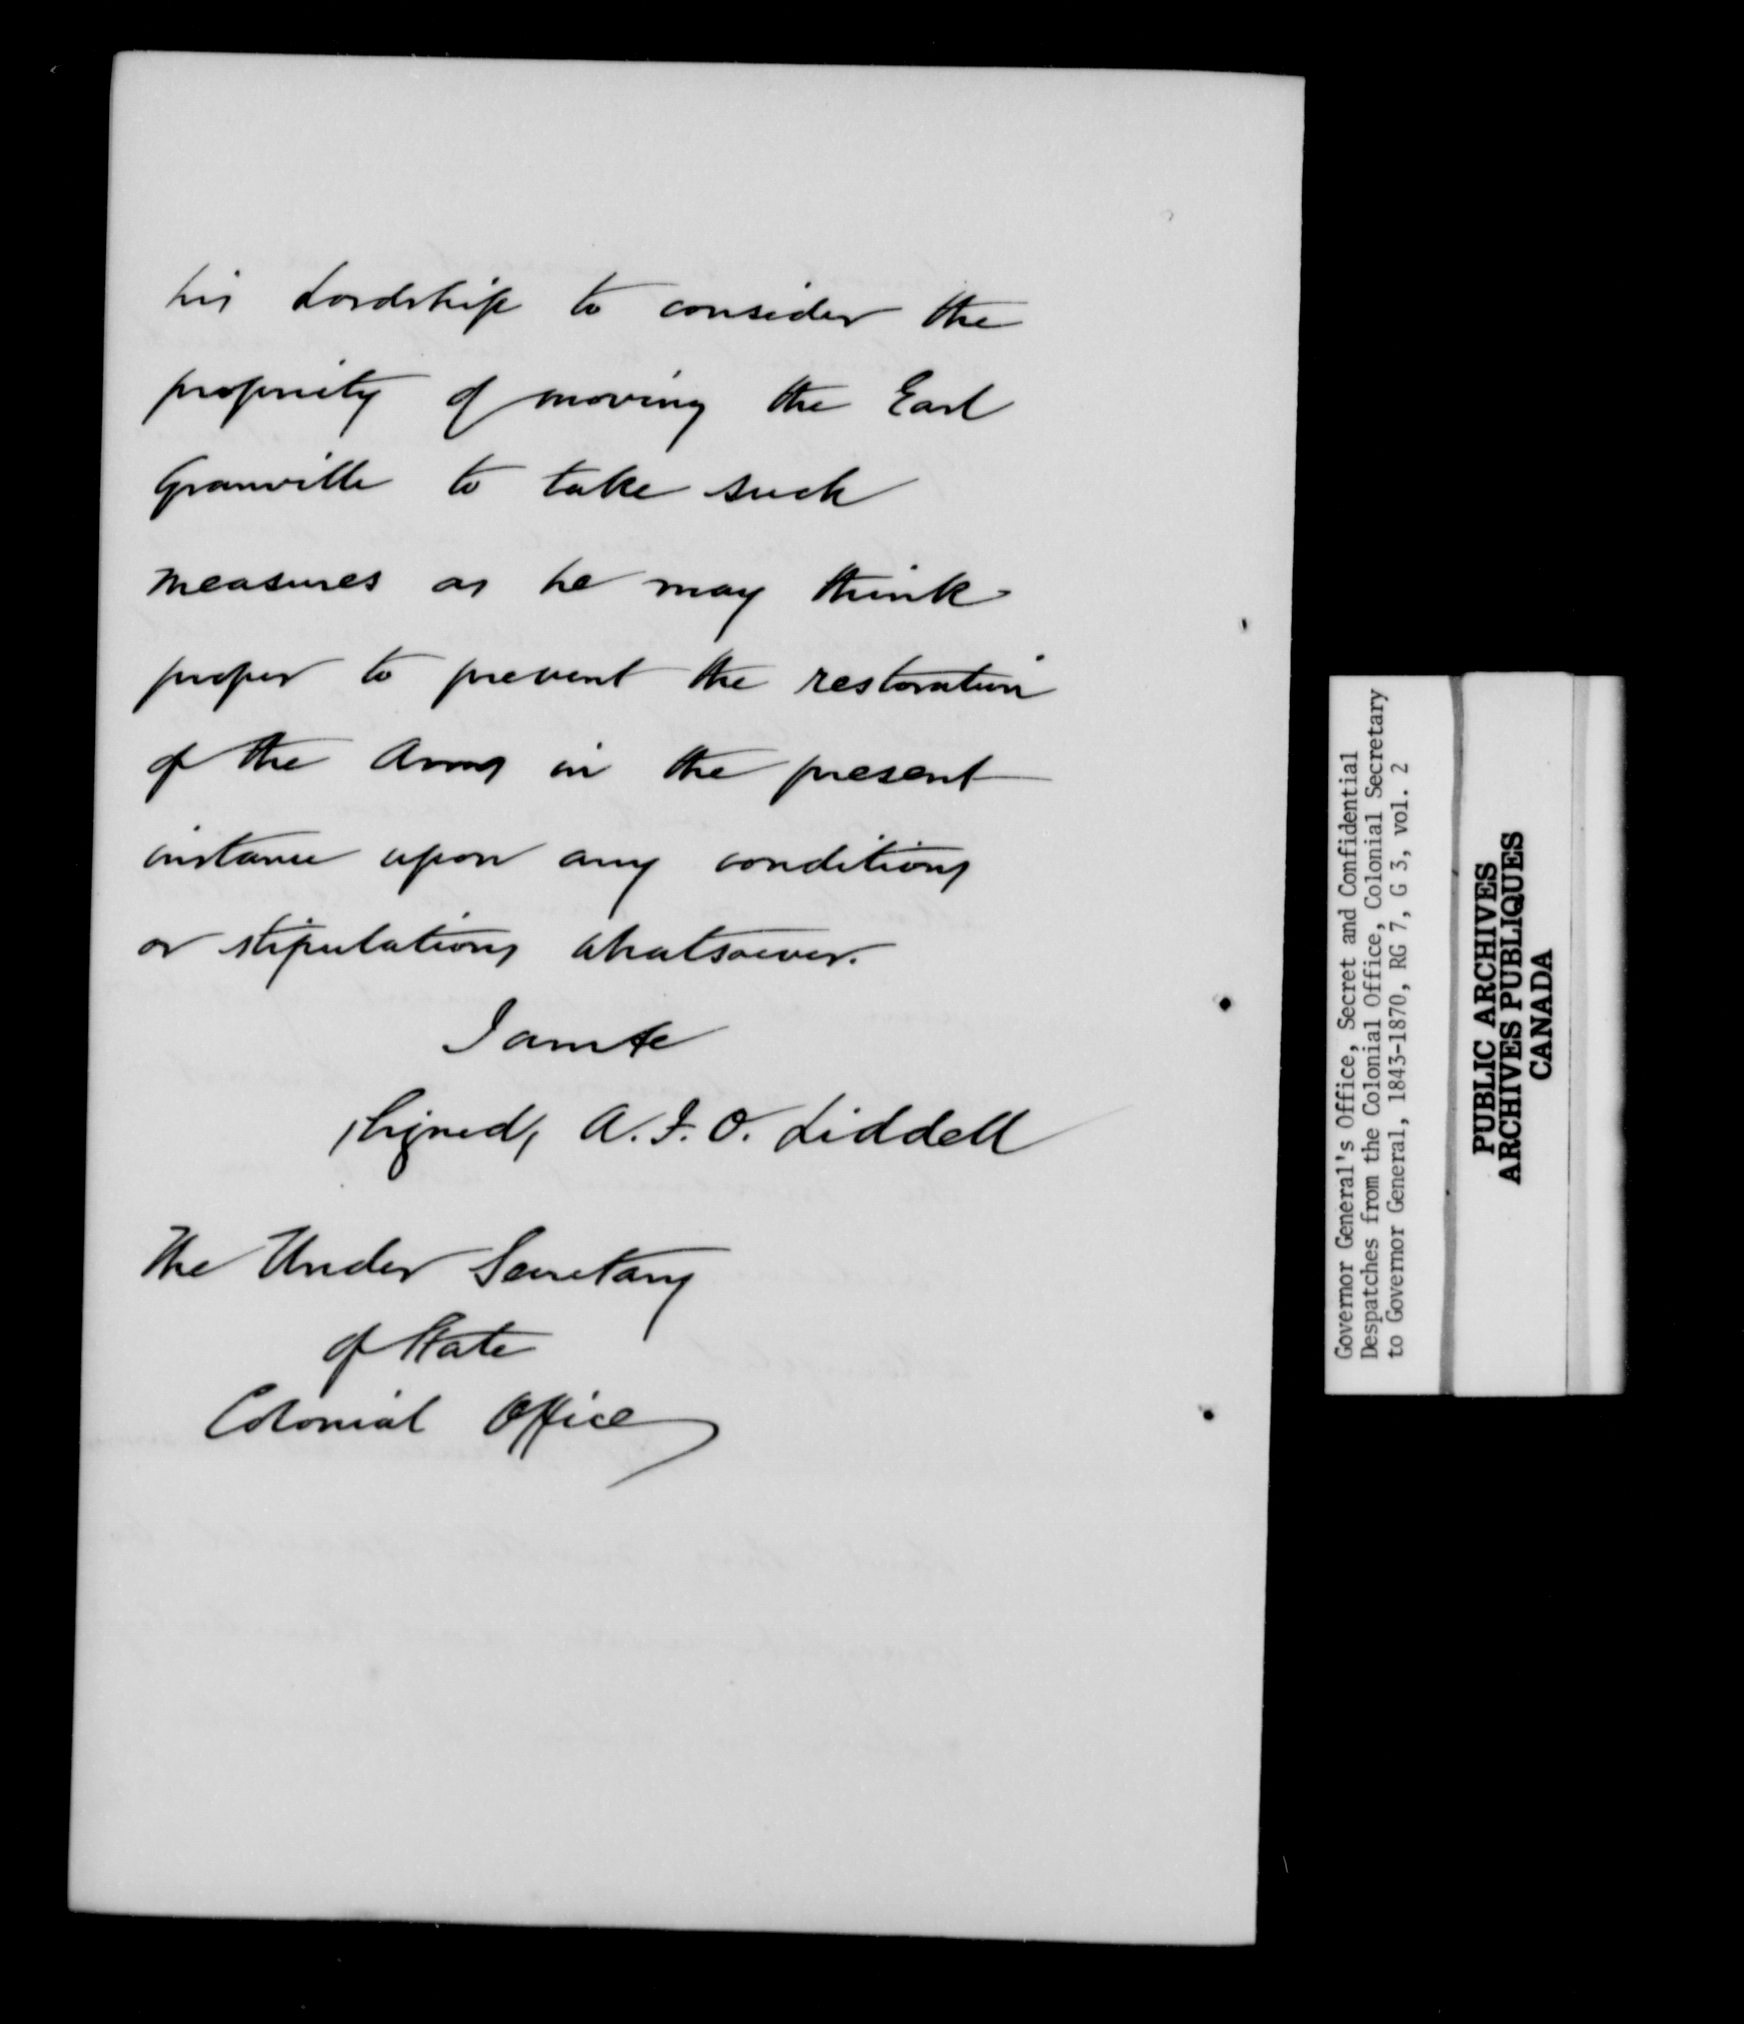 his Lordship to consider the
propriety of moving the Earl
Granville to take such
measures as he may think
proper to prevent the restoration
of the Arms in the present
instance upon any conditions
or stipulations whatsoever.
I am &c
(Signed) A. F. O. Liddell
The Under Secretary
of State
Colonial Office
Governor General's Office, Secret and Confidential
Despatches from the Colonial Office, Colonial Secretary
to Governor General, 1843-1870, RG 7, G 3, vol. 2
PUBLIC ARCHIVES
ARCHIVES PUBLIQUES
CANADA